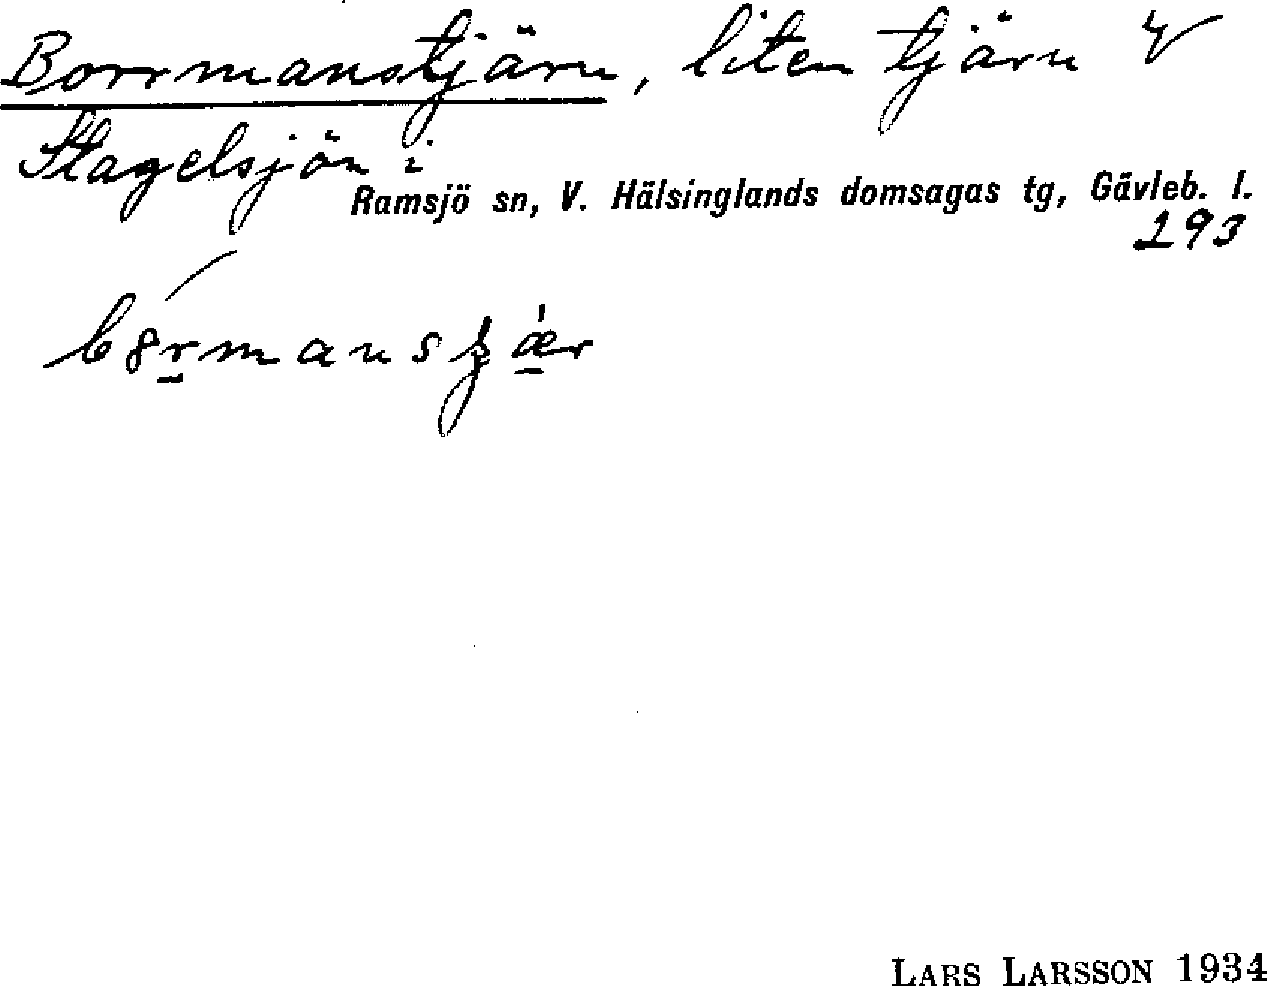 Borrmanstjärn, liten tjärn V
Stagelsjön i
Ramsjö sn, V. Hälsinglands domsagas tg, Gävleb. l.
193
LARS LARSSON 1934